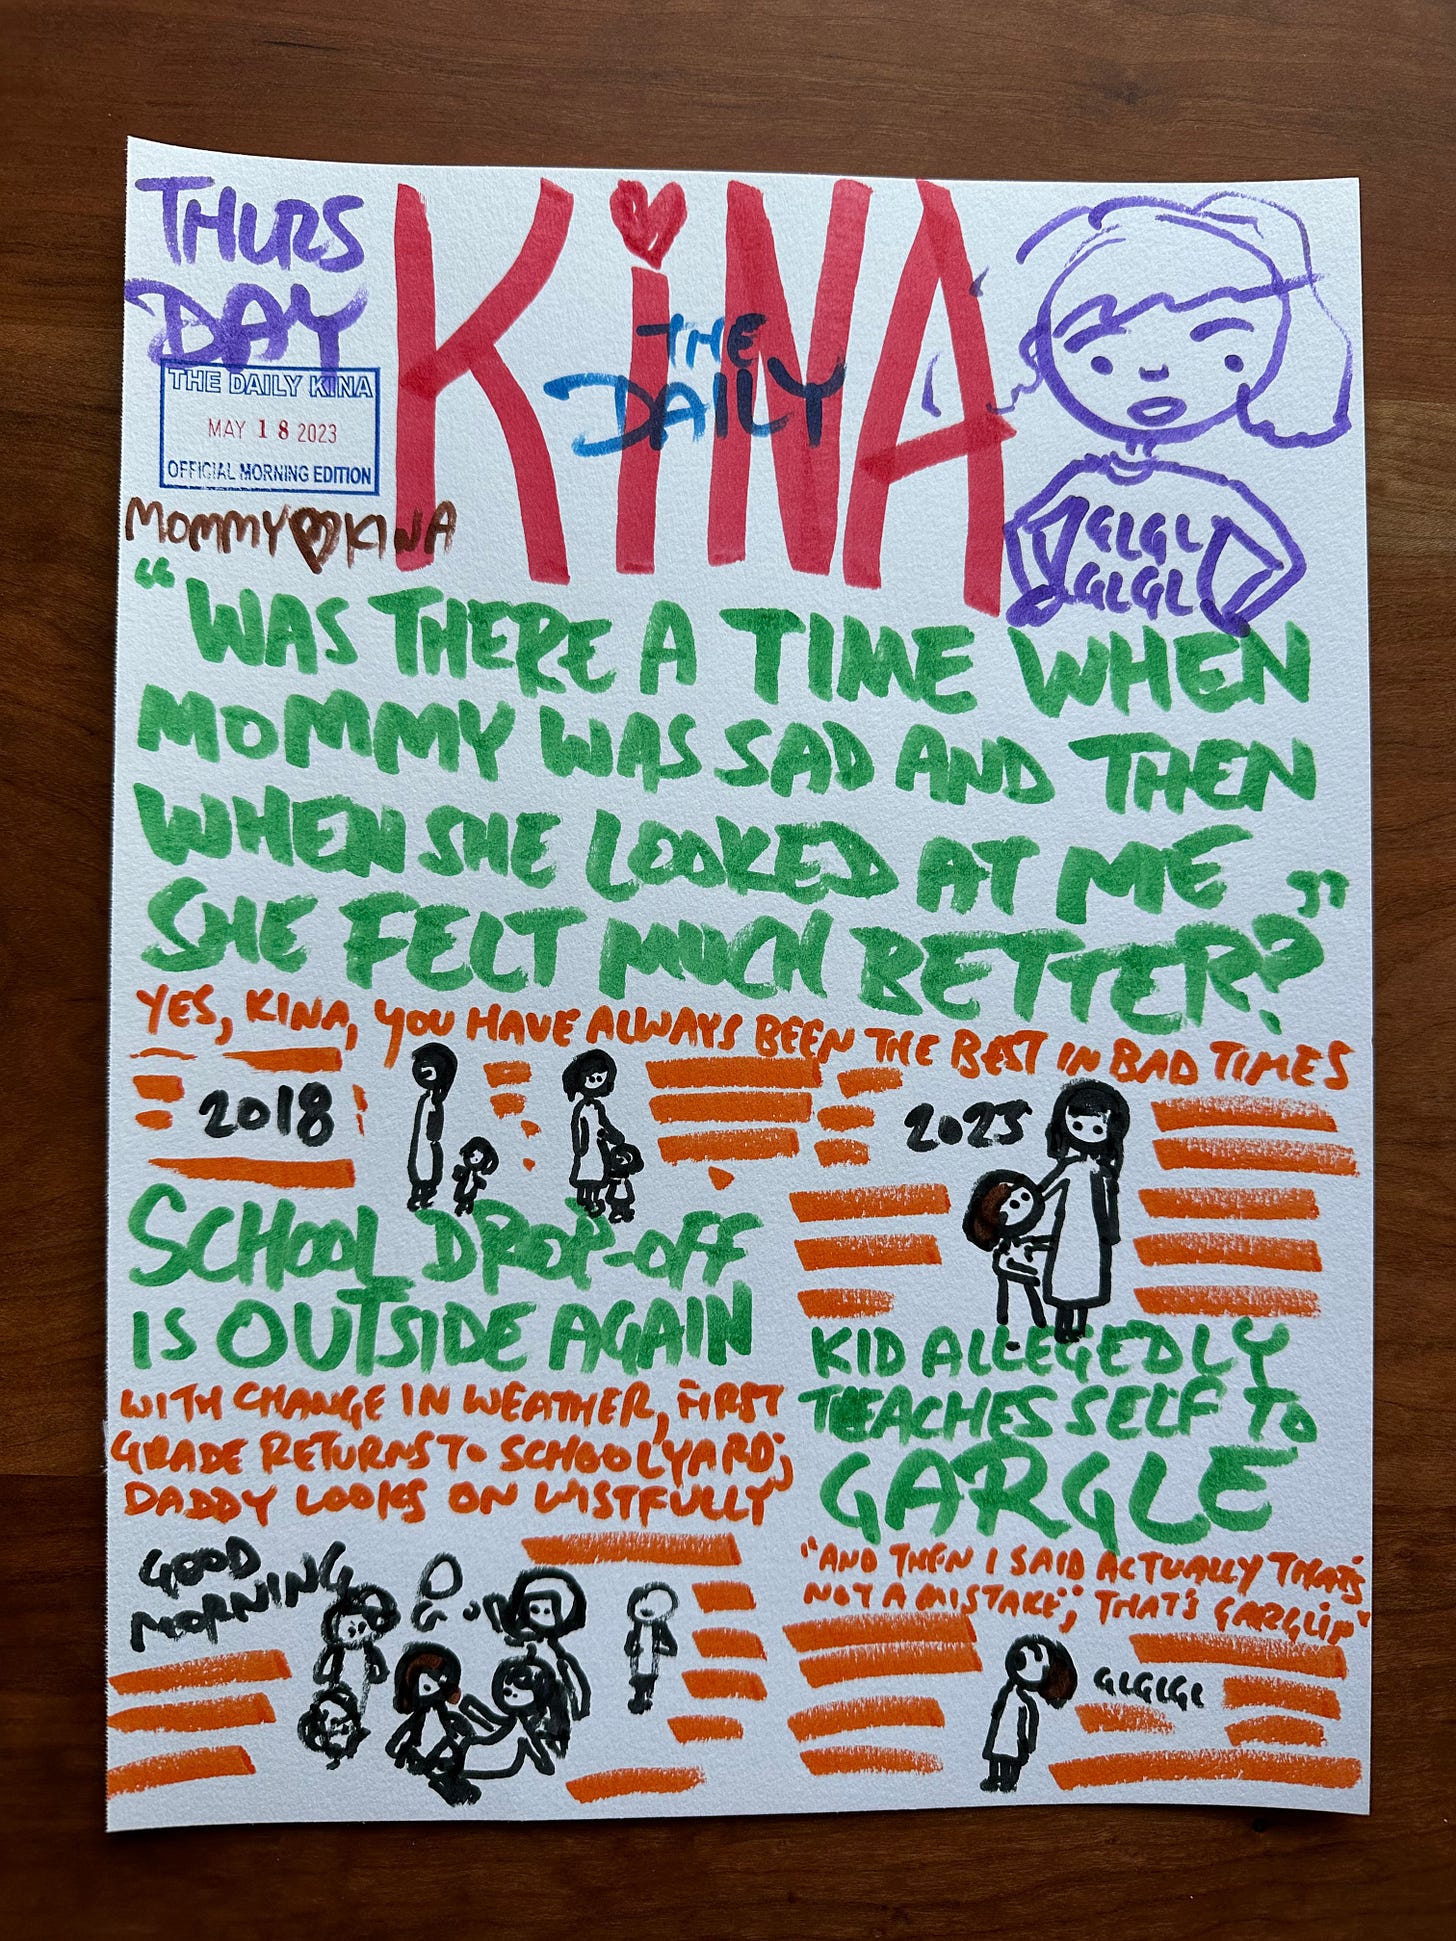 THURS
DAY
THE DAILY KINA
MAY 18 2023
OFFICIAL MORNING EDITION
MOMMY KINA
KiNA
THE
DAILY
GLGL
GLGL
“WAS THERE A TIME WHEN
MOMMY WAS SAD AND THEN
WHEN SHE LOOKED AT ME
SHE FELT MUCH BETTER?”
YES, KINA, YOU HAVE ALWAYS BEEN THE BEST IN BAD TIMES
2018
2023
SCHOOL DROP-OFF
IS OUTSIDE AGAIN
WITH CHANGE IN WEATHER, FIRST
GRADE RETURNS TO SCHOOLYARD;
DADDY LOOKS ON WISTFULLY
GOOD
MORNING
KID ALLEGEDLY
TEACHES SELF TO
GARGLE
"AND THEN I SAID ACTUALLY THAT'S
NOT A MISTAKE; THAT'S GARGLIN"
GLGLGL